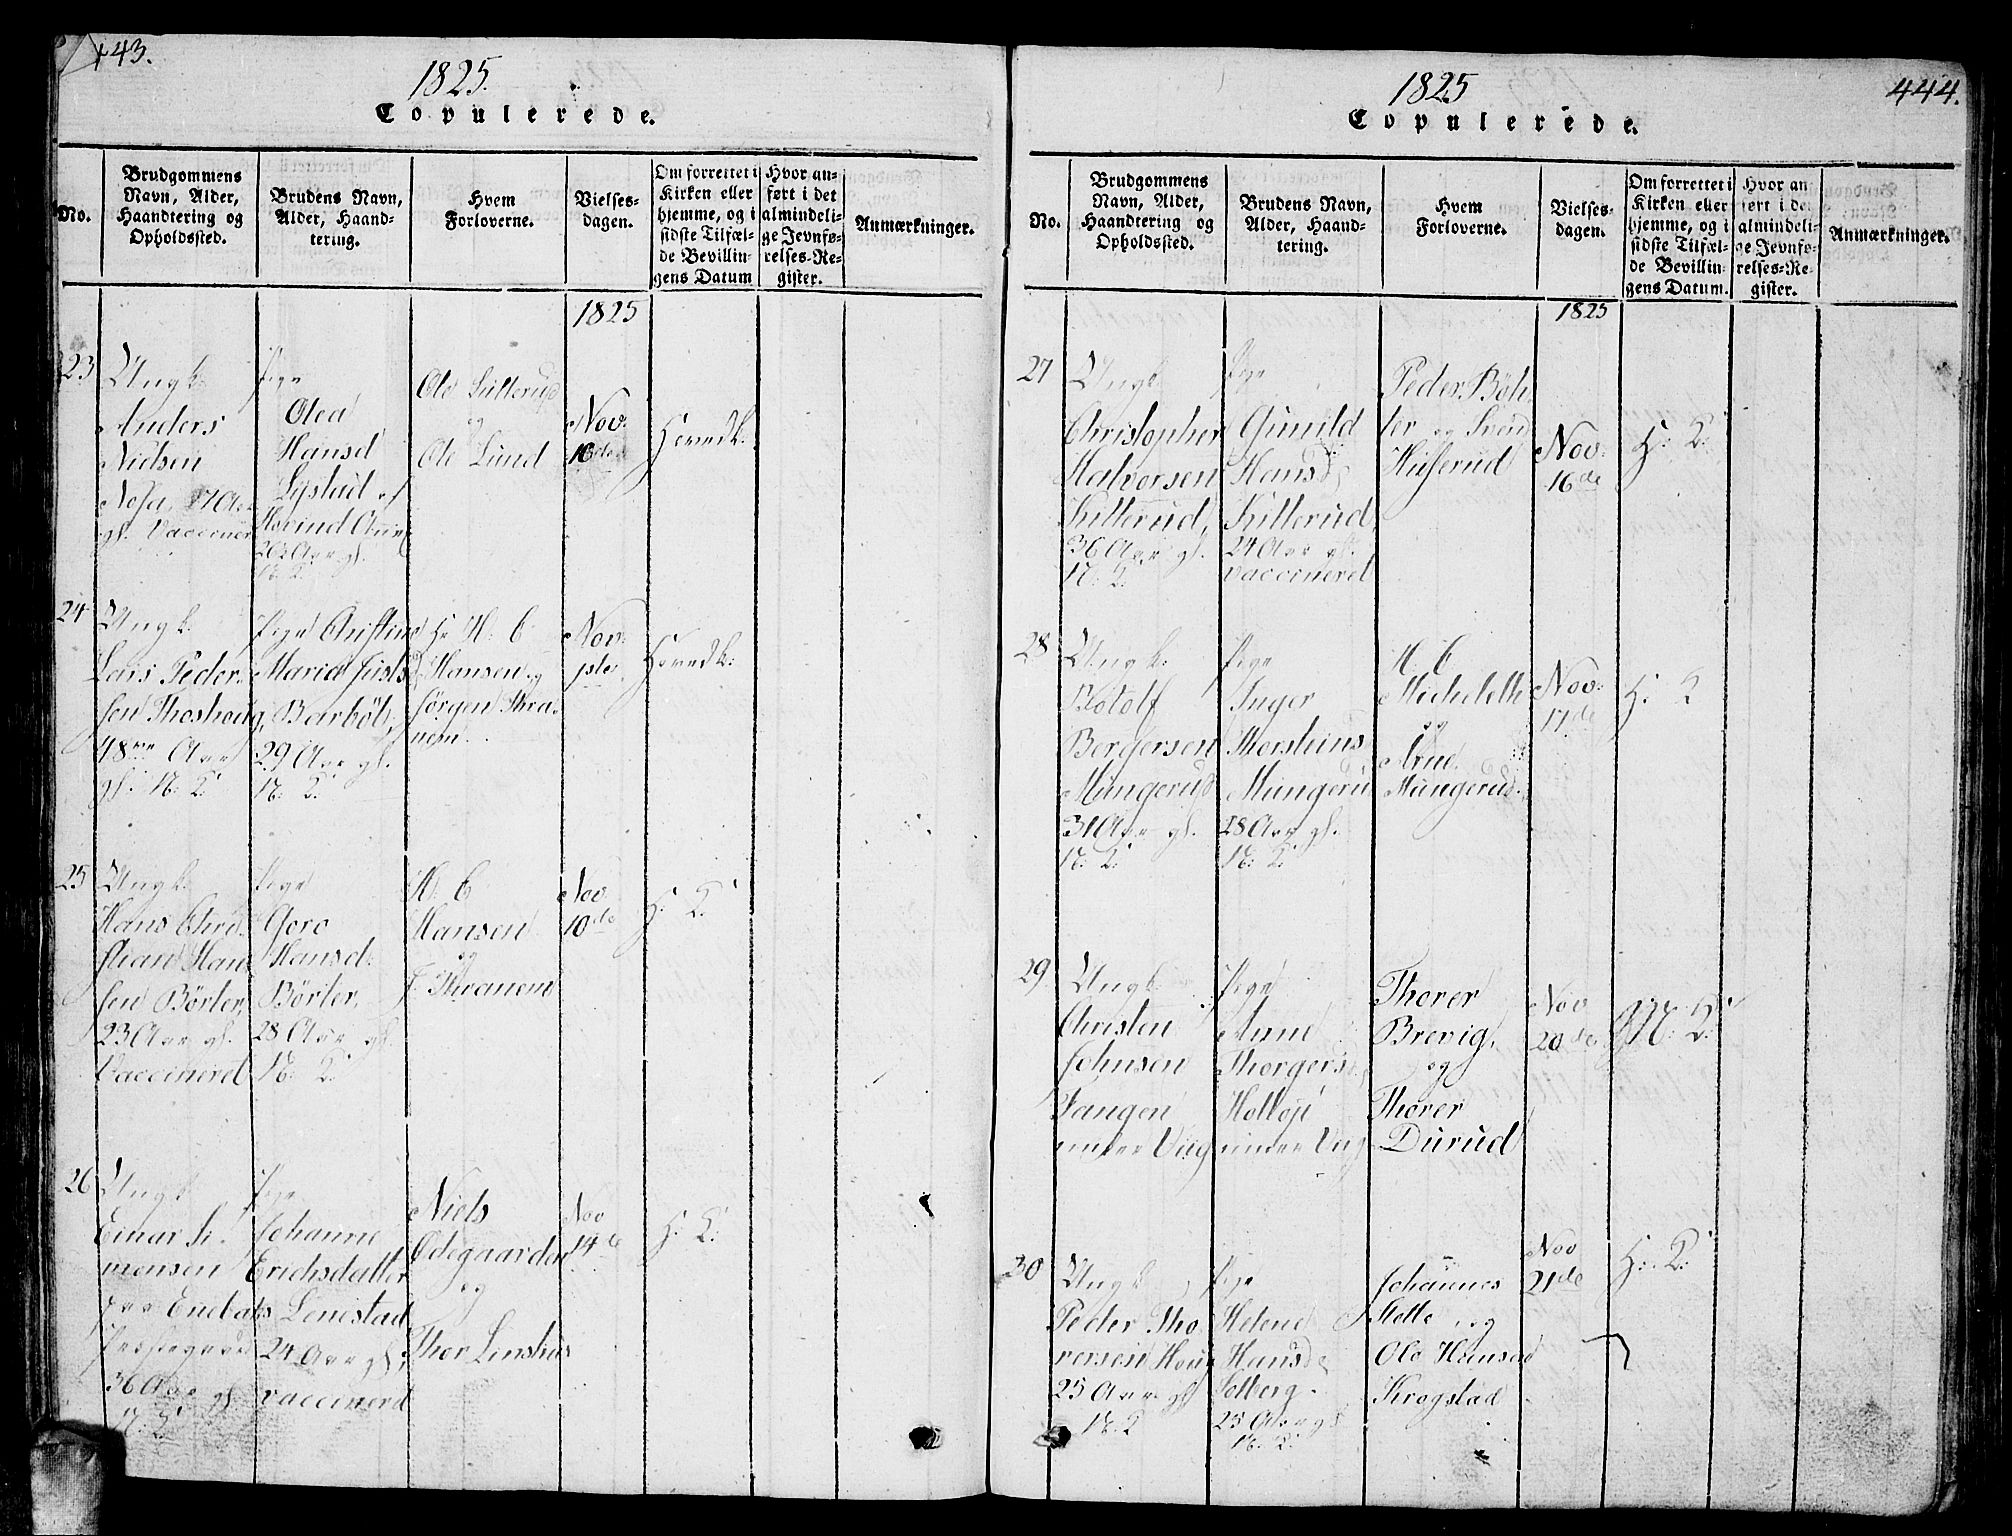 443.
1825.
Copulerede.
No.
Brudgommens
Navn, Alder,
Haandtering og
Opholdssted.
Brudens Navn,
Alder, Haand-
tering.
Hvem
Forloverne.
Vielses-
dagen.
Om forrettet i
Kirken eller
hjemme, og i
sidste Tilfæl-
de Bevillin-
gens Datum
Hvor an-
ført i det
almindeli-
ge Jevnfø-
relses-Re-
gister.
Anmærkninger.
1825
23
Ungk.
Anders
Nielsen
gl. Vaccineret
Pige
Olea
Hansd
Hovind
20 Aar gl.
N: K.
Ole Sitterud
og
Ole Lund
Nov.
Hovedk.
24
Ungk.
Lars Peder-
sen Thoshoug
48 Aar
gl. N: K.
Pige Christine
Maria Justs
Barbøl,
29 Aar gl.
N: K.
Hr H: C
Hansen og
Jørgen Thra-
nem.
Nov.
Hovedk:
25
Ungk.
Hans Chri-
stian Han
sen Börter,
23 Aar gl.
Vaccineret
Pige
Goro
Hansd:
Börter,
28 Aar gl.
N: K.
H. C
Hansen
og
J. Thranem
Nov
10de
H. K.
26
Ungk.
Einar Si-
mensen
Enebaks
Præstegaard
36 Aar gl.
N: K.
Pige
Johanne
Erichsdatter
Lenestad
24 Aar gl,
vaccinerd
Niels
Ødegaarden
og
Thor Lenshus
Nov
14de
H. K.
1825
444.
Copulerede.
No.
Brudgommens
Navn, Alder,
Haandtering og
Opholdssted.
Brudens Navn,
Alder, Haand-
tering.
Hvem
Forloverne.
Vielses-
dagen.
Om forrettet i
Kirken eller
hjemme, og i
sidste Tilfæl-
de Bevillin-
gens Datum.
Hvor an
ført i det
almindeli-
ge Jevnfø-
relses-Re-
gister.
Anmærkninger.
1825
27
Ungk
Christopher
Halvorsen
Kitterud,
36 Aar gl.
N: K.
Pige
Gunild
Hansd
Kitterud,
24 Aar gl.
vaccineret
Peder Böh
ler og Svend
Huserud
Nov.
16de
H: K:
28
Ungk.
Botolf
Bergersen
Mungerud
31 Aar gl.
N: K.
Pige
Inger
Thorsteins
Mungerud
28 Aar gl.
N: K.
H. C
Micheleth
og
Arne
Mungerud.
Nov:
17de
H. K
29
Ungk.
Christen
Johnsen
Tangen
under Vug
Pige
Anne
Thorgers
under Vug
Thorer
Brevig,
og
Thorer
Durud
Nov
20de
K.
30
Ungk
Peder Tho
resen Houg
25 Aar gl
N. K
Pige
Helene
Hansd
Solberg.
25 Aar gl
N. K.
Johannes
og
Ole Hansen
Krogstad
Nov
21de
H. K.